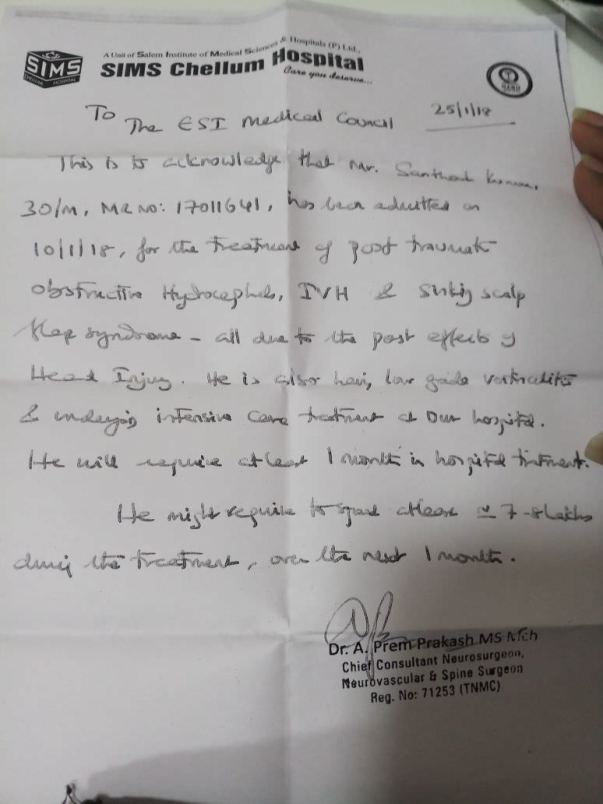 SIMS
CHELLUM HOSPITAL
A Unit of Salem Institute of Medical Sciences & Hospitals (P) Ltd.,
SIMS Chellum Hospital
Care you deserve...
25/1/18
To
The ESI Medical Council
This is to acknowledge that Mr. Santhosh Kumar,
30/M, MR NO: 17011641, has been admitted on
10/1/18, for the treatment of post traumatic
obstructive Hydrocephalus, IVH & sinking scalp
flap syndrome - all due to the post effects of
Head Injury. He is also having low grade ventriculitis
& undergoing intensive care treatment at our hospital.
He will require at least 1 month in hospital treatment.
He might require to spend atleast 7-8 lakhs
during the treatment, over the next 1 month.
Dr. A. Prem Prakash MS Mch
Chief Consultant Neurosurgeon,
Neurovascular & Spine Surgeon
Reg. No: 71253 (TNMC)